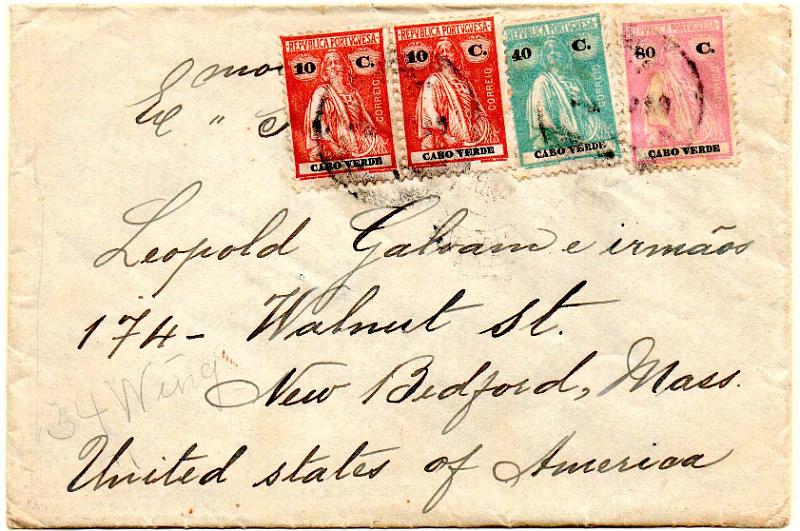 REPUBLICA PORTUGUESA
10 C.
CORREIO
CABO VERDE
REPUBLICA PORTUGUESA
10 C.
CORREIO
CABO VERDE
REPUBLICA PORTUGUESA
40 C.
CORREIO
CABO VERDE
REPUBLICA PORTUGUESA
80 C.
CORREIO
CABO VERDE
Ex "
Leopold Galvam e irmãos
174- Walnut St.
34 Wing
New Bedford, Mass.
United states of America